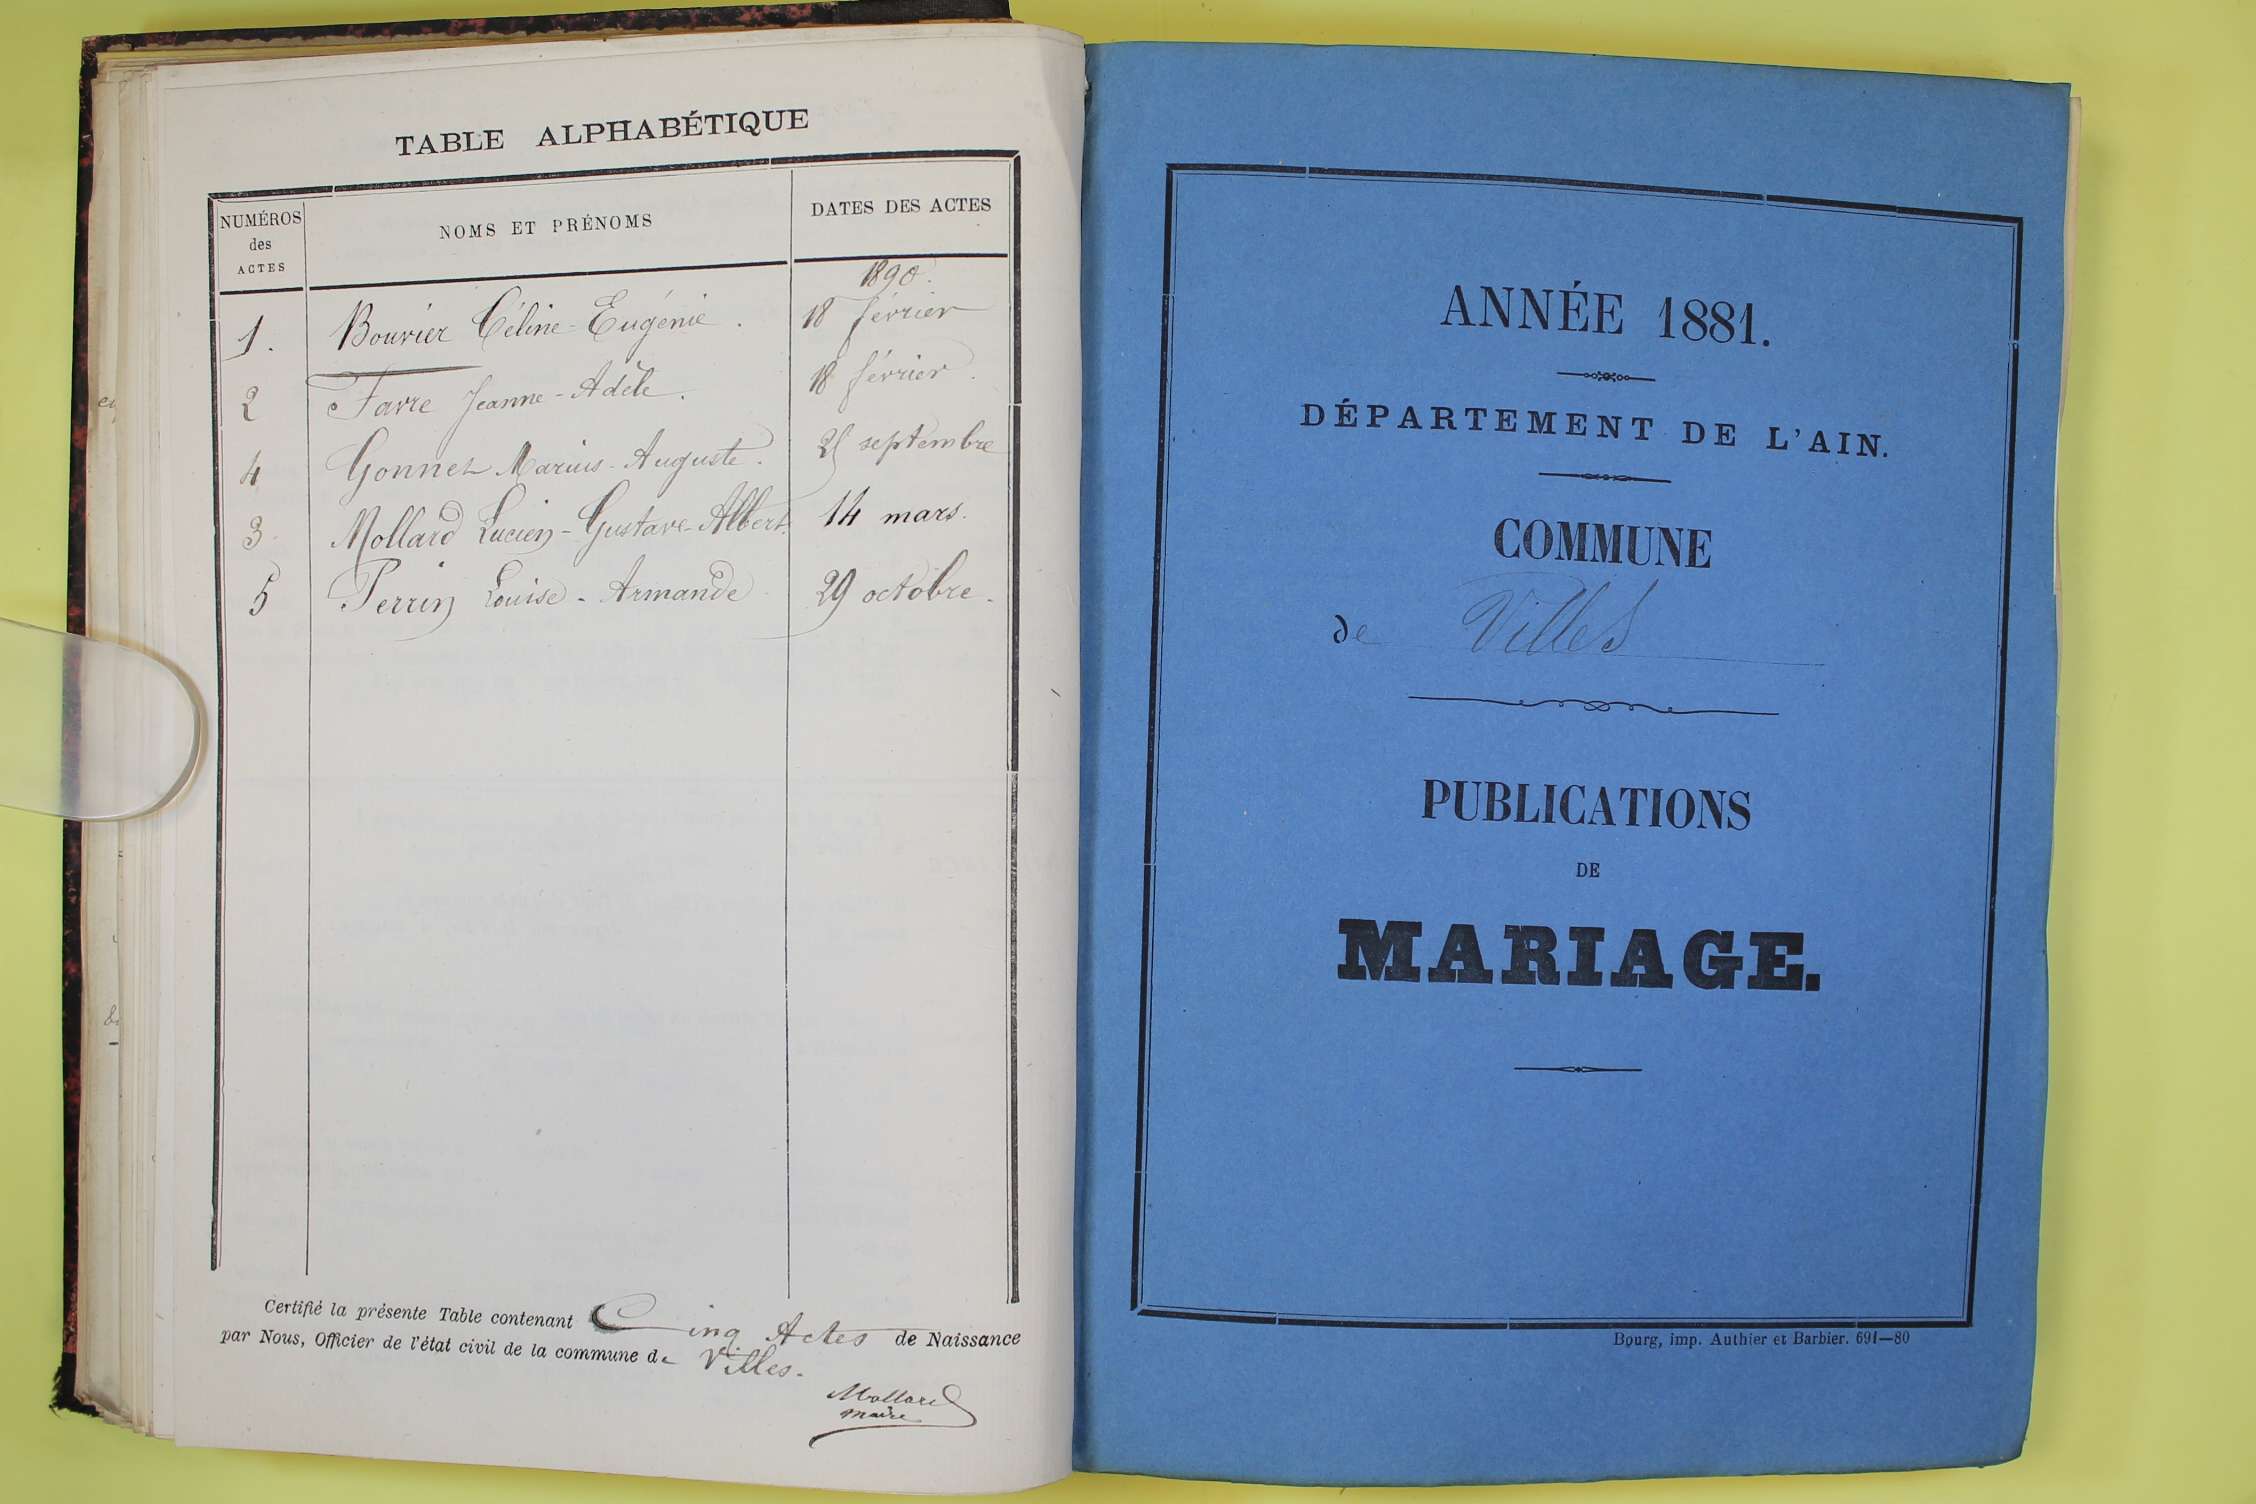 TABLE ALPHABÉTIQUE
NUMÉROS des ACTES NOMS ET PRÉNOMS DATES DES ACTES
1890.
1. Bouvier Céline-Eugénie. 18 février
2 Favre Jeanne-Adèle. 18 février.
4 Gonnet Marius-Auguste. septembre
3 Mollard Lucien-Gustave-Albert. 14 mars.
5 Perrin Louise-Armande 29 octobre.
Certifié la présente Table contenant Cinq Actes de Naissance
par Nous, Officier de l'état civil de la commune de Villes.
Mollard
maire
ANNÉE 1881.
DÉPARTEMENT DE L'AIN.
COMMUNE
de Villes
PUBLICATIONS
DE
MARIAGE.
Bourg, imp. Authier et Barbier. 691—80